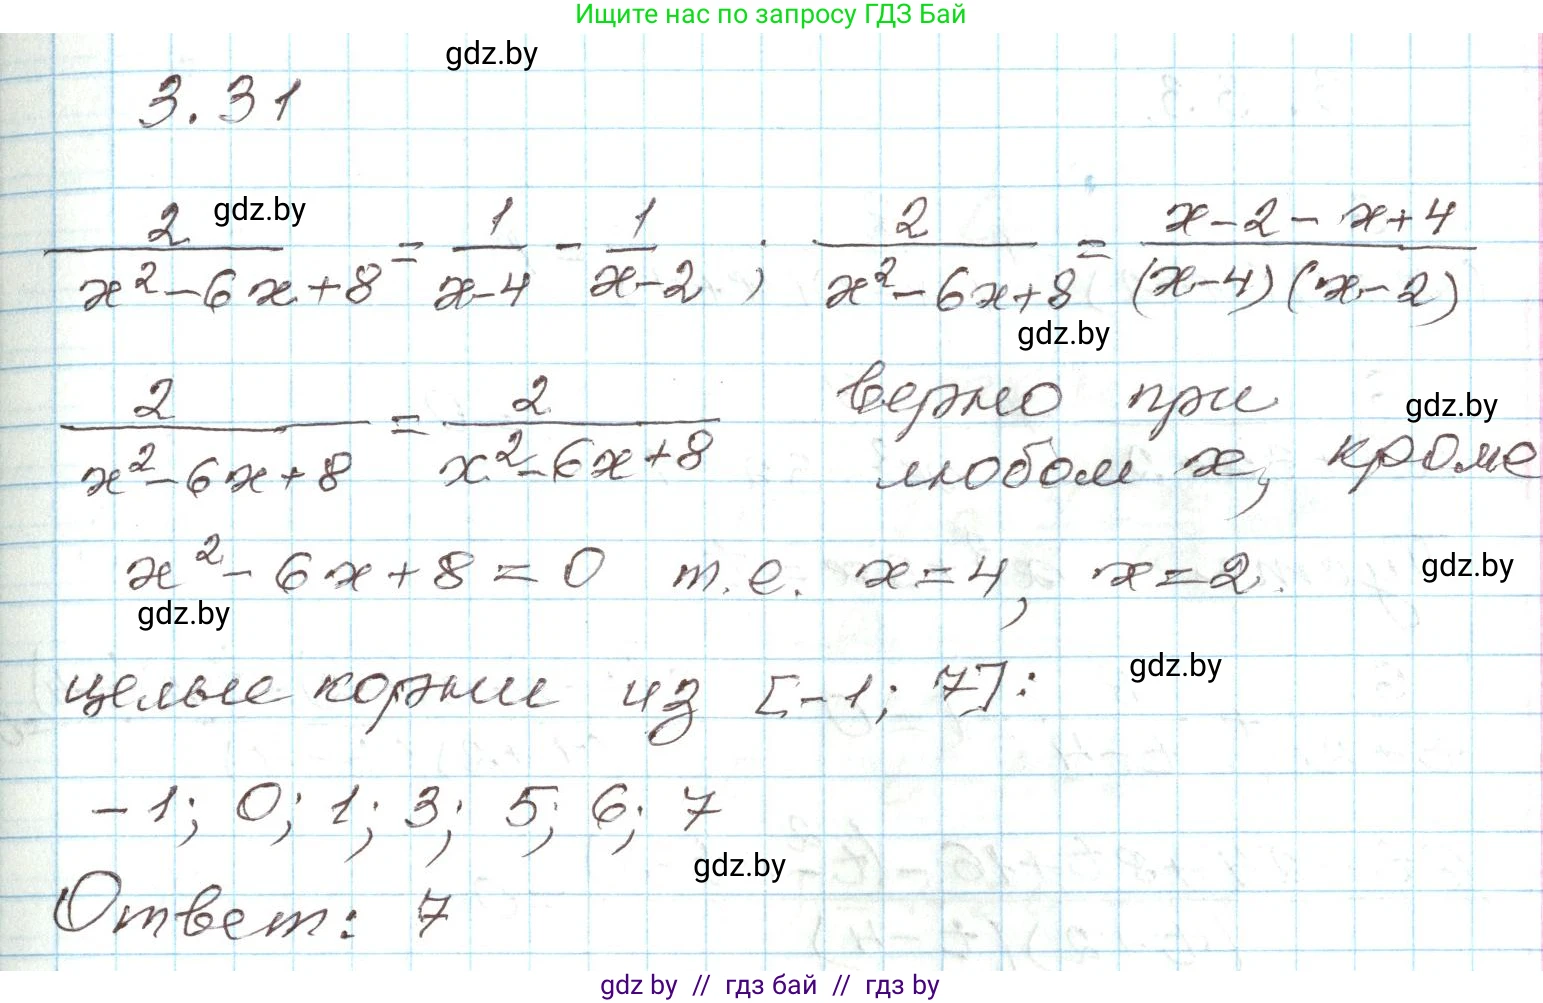 Ищите нас по запросу ГДЗ Бай
gdz.by
3.31
gdz.by
2/(x² - 6x + 8) = 1/(x-4) - 1/(x-2) ; 2/(x² - 6x + 8) = (x - 2 - x + 4)/((x-4)(x-2))
gdz.by
2/(x² - 6x + 8) = 2/(x² - 6x + 8) верно при
gdz.by
любом x, кроме
x² - 6x + 8 = 0 т.е. x = 4, x = 2.
gdz.by
gdz.by
целые корни из [-1; 7]:
gdz.by
-1; 0; 1; 3; 5; 6; 7
gdz.by
Ответ: 7
gdz by // гдз бай // гдз by